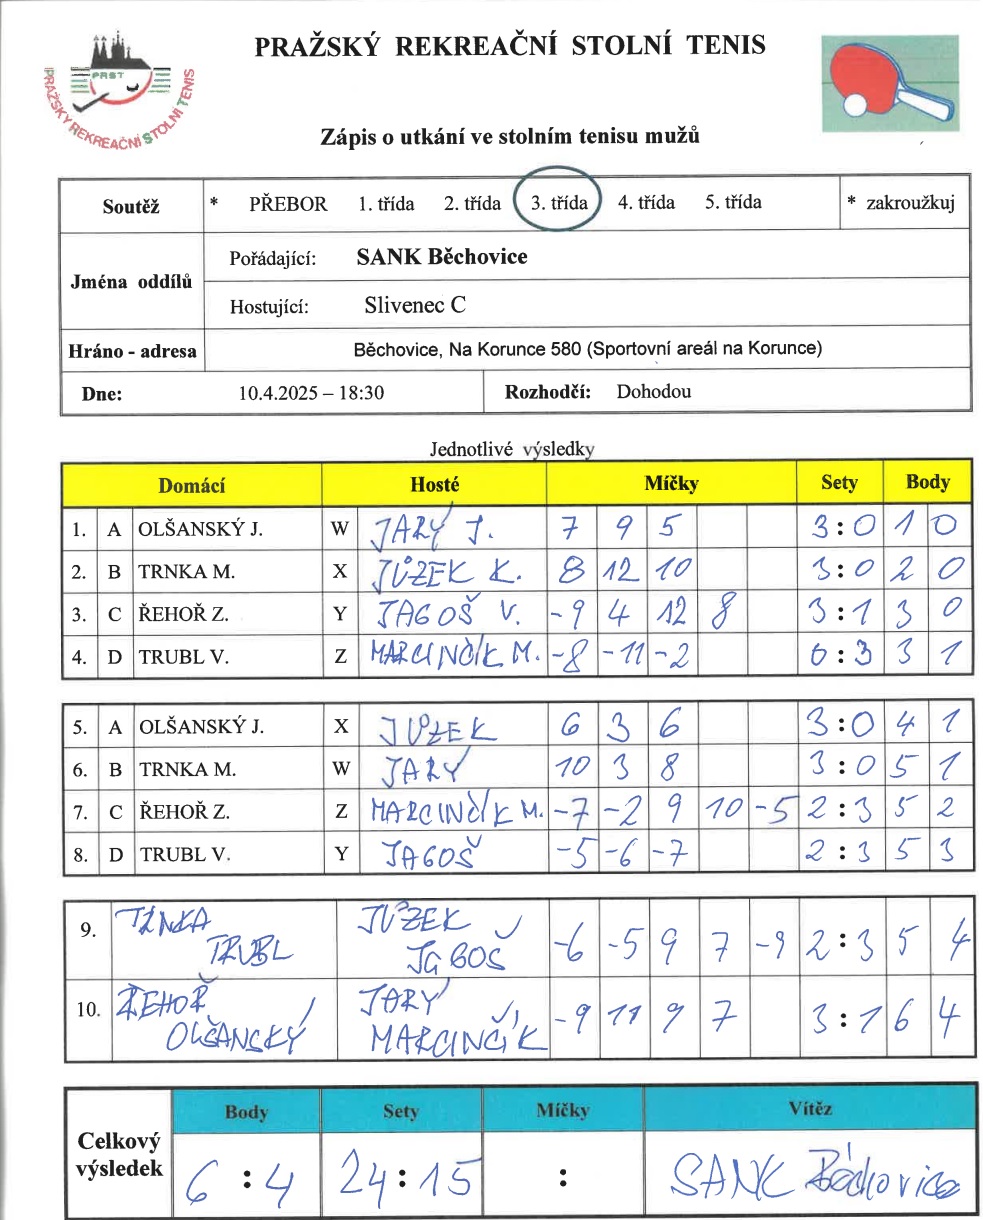 PRAŽSKÝ REKREAČNÍ STOLNÍ TENIS
PRST
PRAŽSKÝ REKREAČNÍ STOLNÍ TENIS
Zápis o utkání ve stolním tenisu mužů
Soutěž * PŘEBOR 1. třída 2. třída 3. třída 4. třída 5. třída * zakroužkuj
Jména oddílů
Pořádající: SANK Běchovice
Hostující: Slivenec C
Hráno - adresa Běchovice, Na Korunce 580 (Sportovní areál na Korunce)
Dne: 10.4.2025 – 18:30 Rozhodčí: Dohodou
Jednotlivé výsledky
Domácí Hosté Míčky Sety Body
1. A OLŠANSKÝ J. W JARÝ J. 7 9 5 3:0 1 0
2. B TRNKA M. X JŮZEK K. 8 12 10 3:0 2 0
3. C ŘEHOŘ Z. Y JAGOŠ V. -9 4 12 8 3:1 3 0
4. D TRUBL V. Z MARCINČÍK M. -8 -11 -2 0:3 3 1
5. A OLŠANSKÝ J. X JŮZEK 6 3 6 3:0 4 1
6. B TRNKA M. W JARÝ 10 3 8 3:0 5 1
7. C ŘEHOŘ Z. Z MARCINČÍK M. -7 -2 9 10 -5 2:3 5 2
8. D TRUBL V. Y JAGOŠ -5 -6 -7 2:3 5 3
9. TRNKA TRUBL JŮZEK JAGOŠ -6 -5 9 7 -9 2:3 5 4
10. ŘEHOŘ OLŠANSKÝ JARÝ MARCINČÍK -9 11 9 7 3:1 6 4
Celkový výsledek
Body Sety Míčky Vítěz
6:4 24:15 : SANK Běchovice